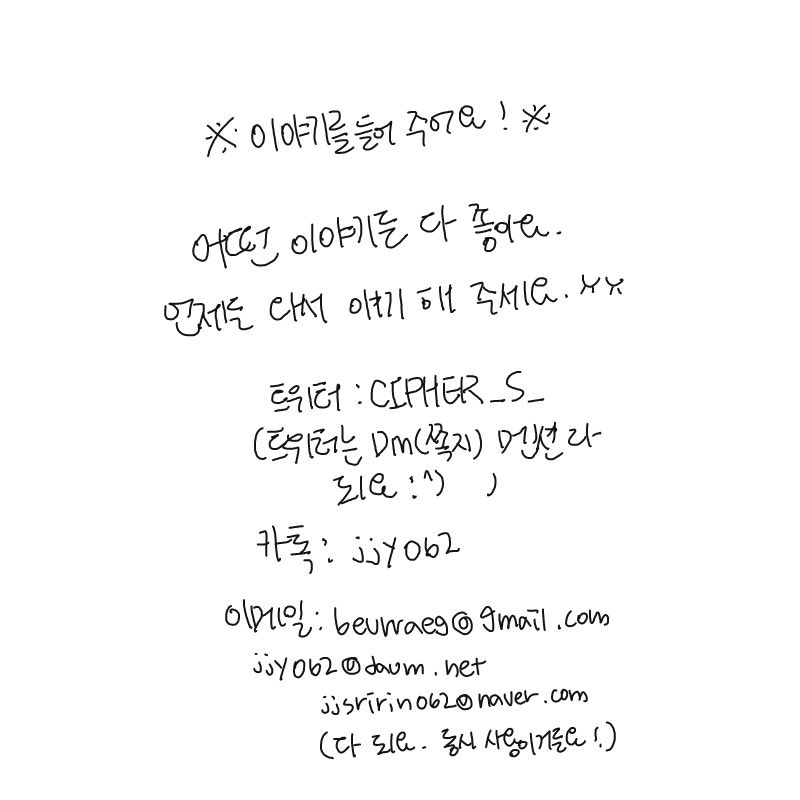 ※ 이야기를 들어 주어요! ※
어떤 이야기든 다 좋아요.
언제든 와서 얘기 해 주세요. ㅠㅠ
트위터 : CIPHER_S_
(트위터는 Dm(쪽지) 멘션 다
되요 :^) )
카톡 : jjy062
이메일 : @gmail.com
jjy062@daum.net
jjsririn062@naver.com
(다 되요. 동시 사용이거든요!.)